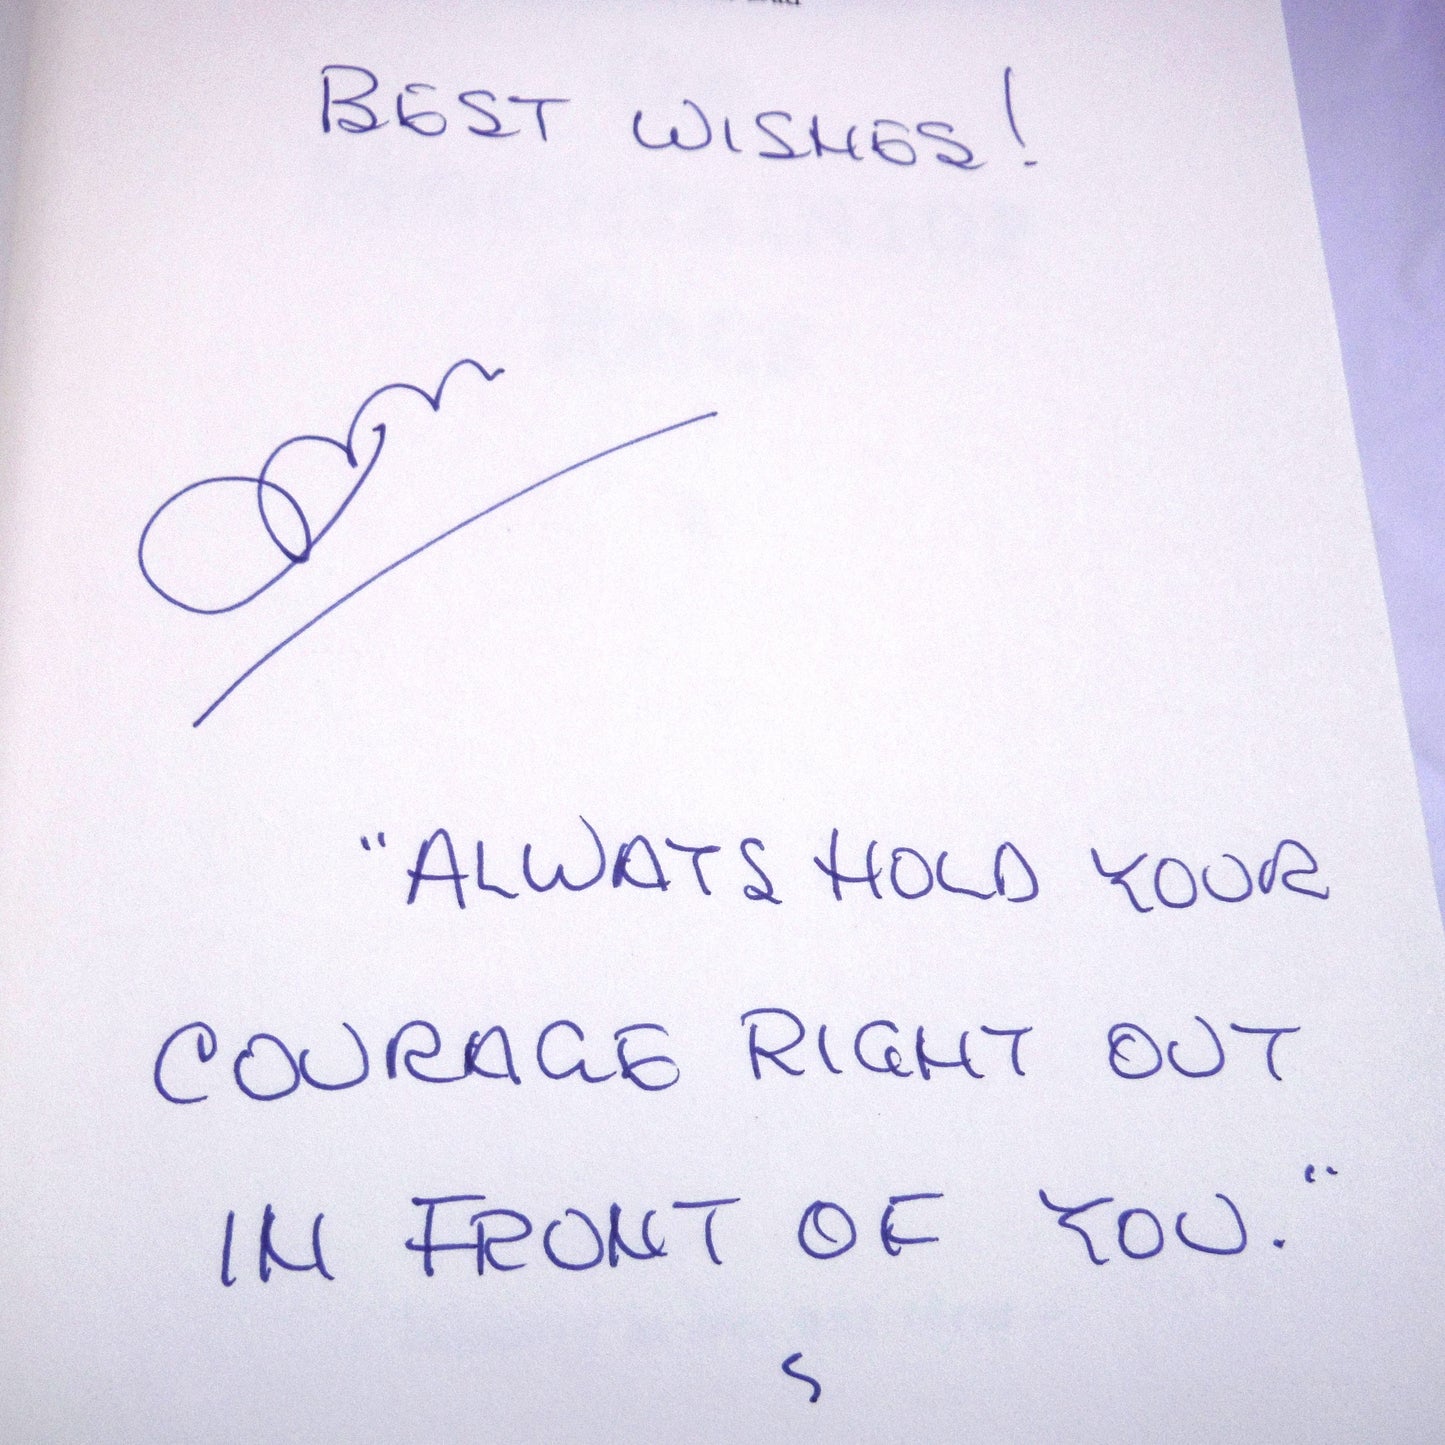 BEST WISHES!
"ALWAYS HOLD YOUR
COURAGE RIGHT OUT
IN FRONT OF YOU."
S